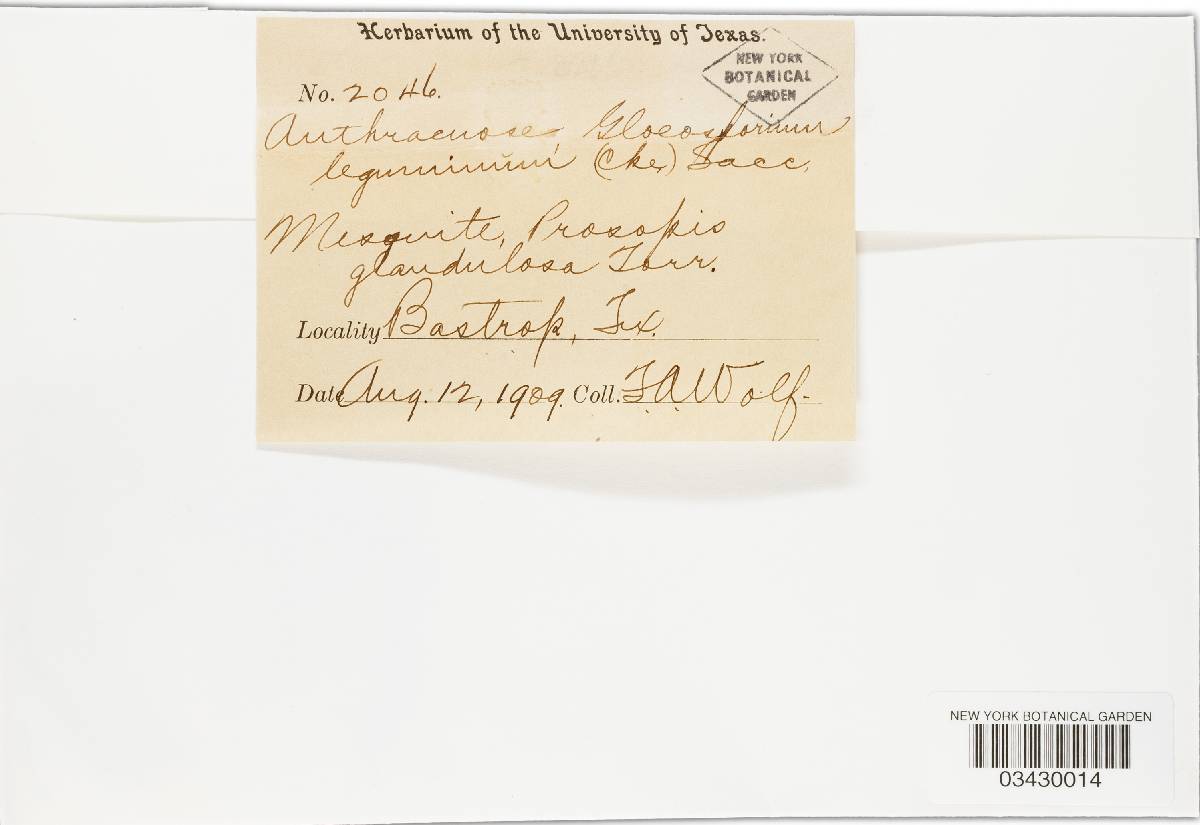 Herbarium of the University of Texas.
NEW YORK
BOTANICAL
GARDEN
No. 2046.
Anthracnose, Gloeosporium
leguminum (Cke.) Sacc.
Mesquite, Prosopis
glandulosa Torr.
Locality Bastrop, Tx.
Date Aug. 12, 1909. Coll. F.A. Wolf.
NEW YORK BOTANICAL GARDEN
03430014